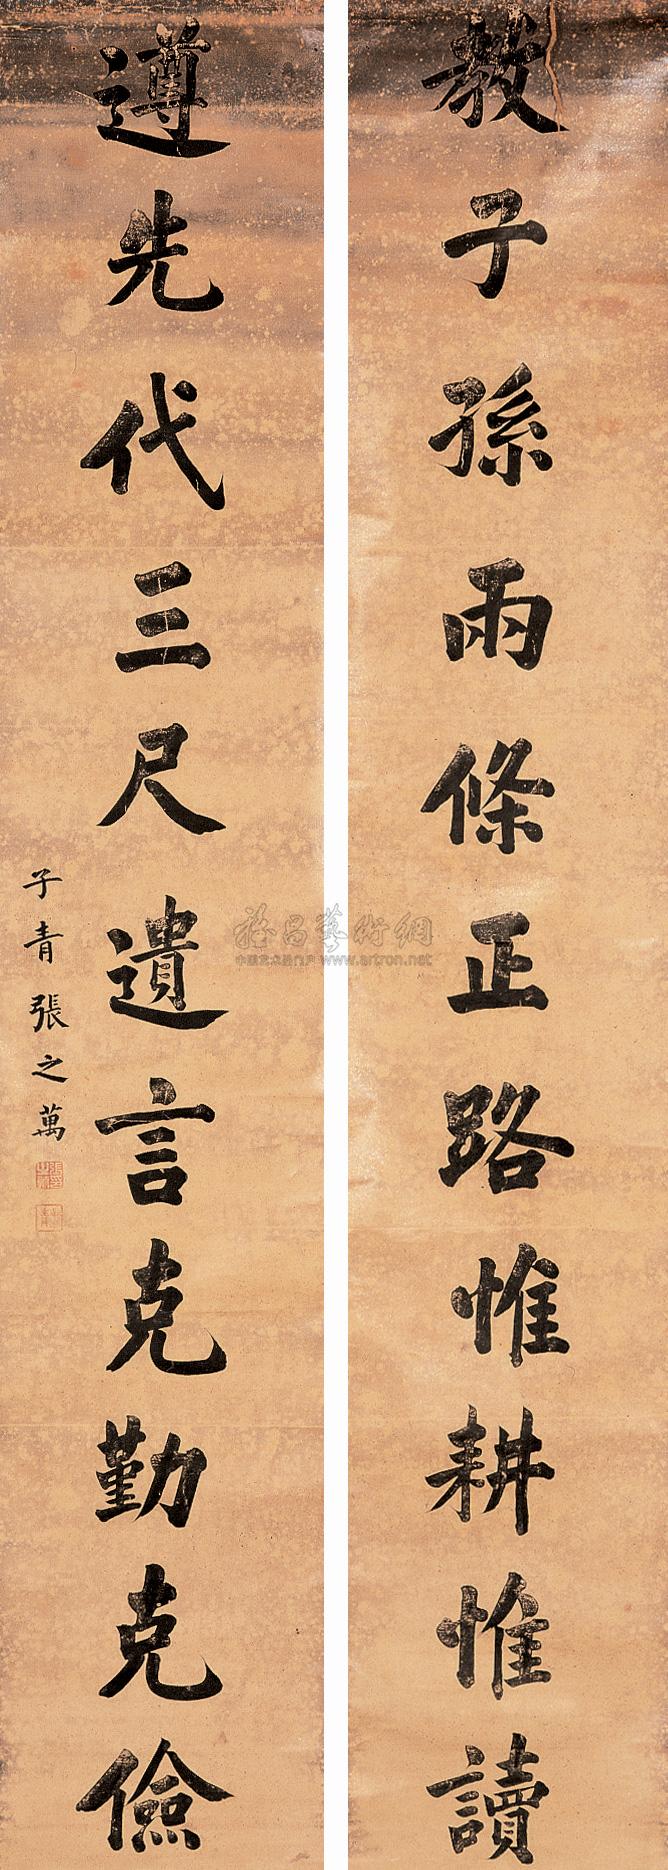 教子孫兩條正路惟耕惟讀
遵先代三尺遺言克勤克儉
子青張之萬
雅昌藝術網
中国艺术品门户 www.artron.net